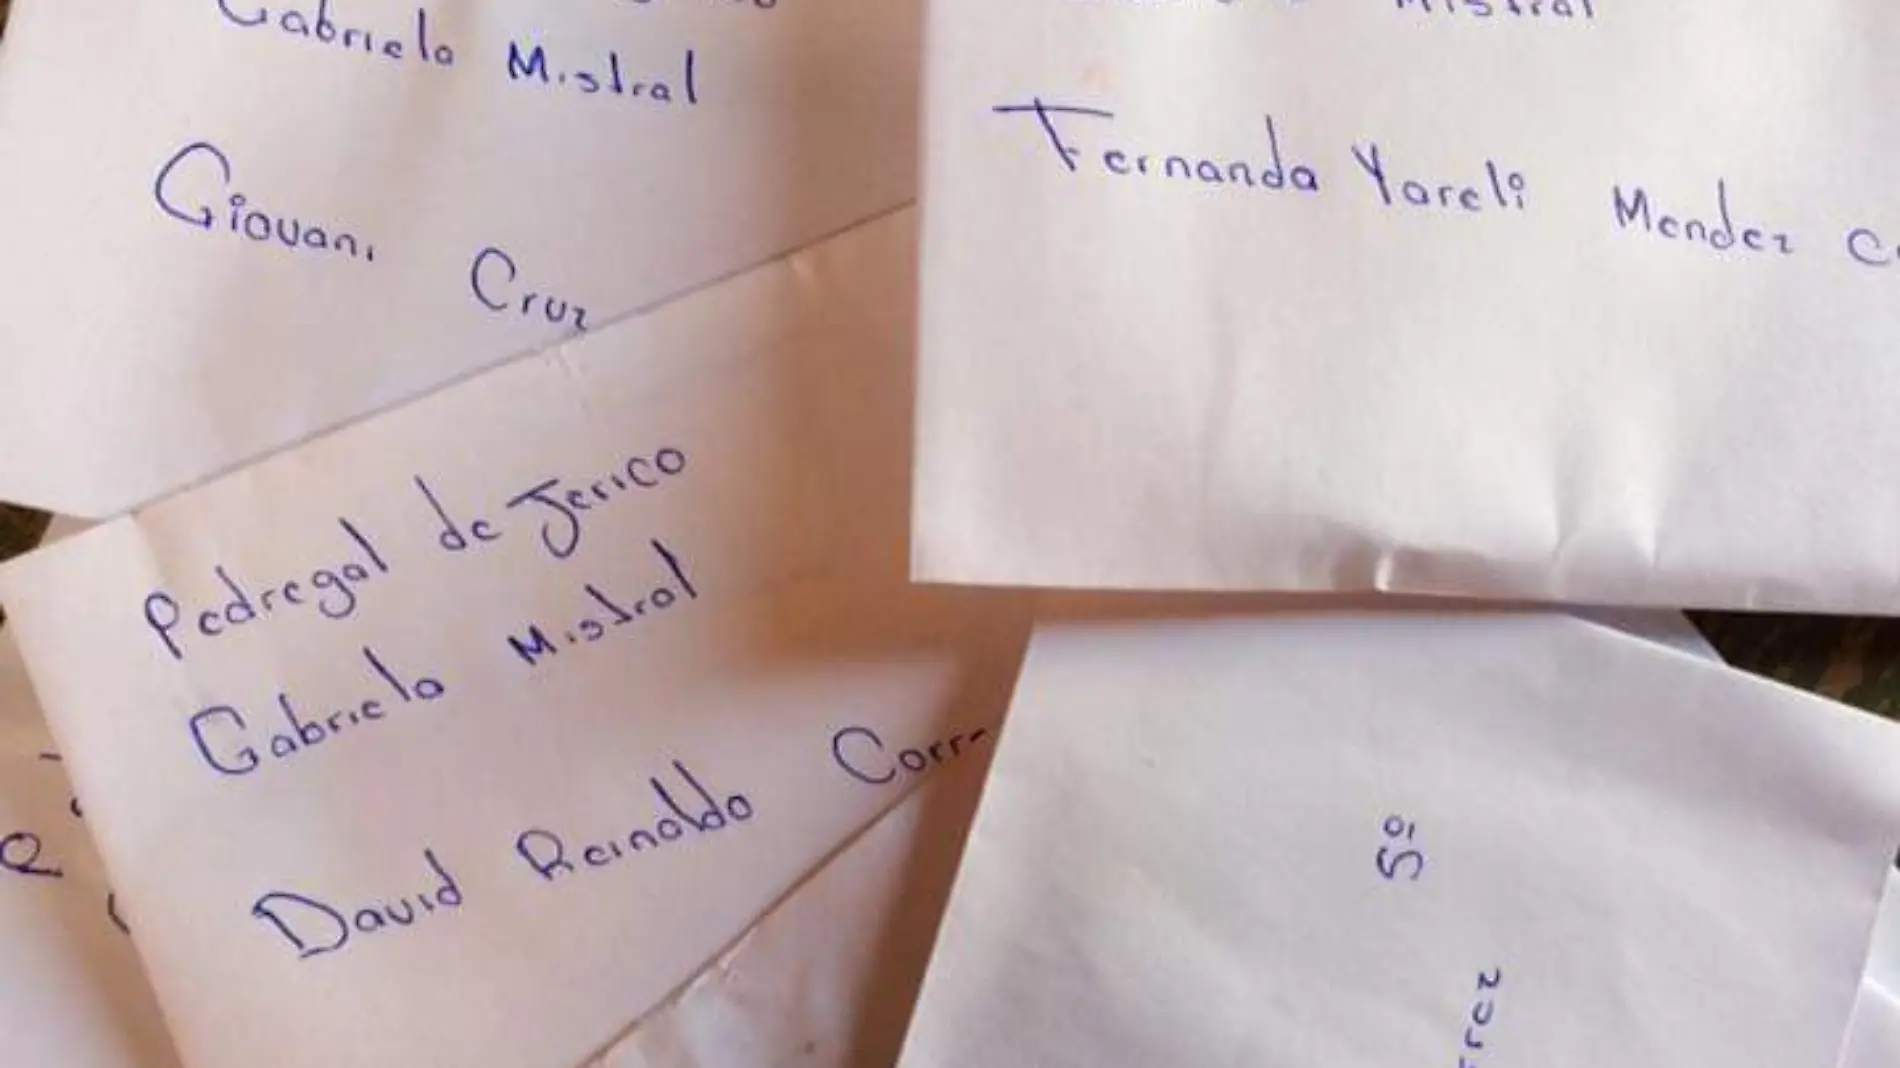 Gabriela Mistral
Giovani Cruz
Mistral
Fernanda Yareli Mendez
Pedregal de Jerico
Gabriela Mistral
David Reinaldo
5º